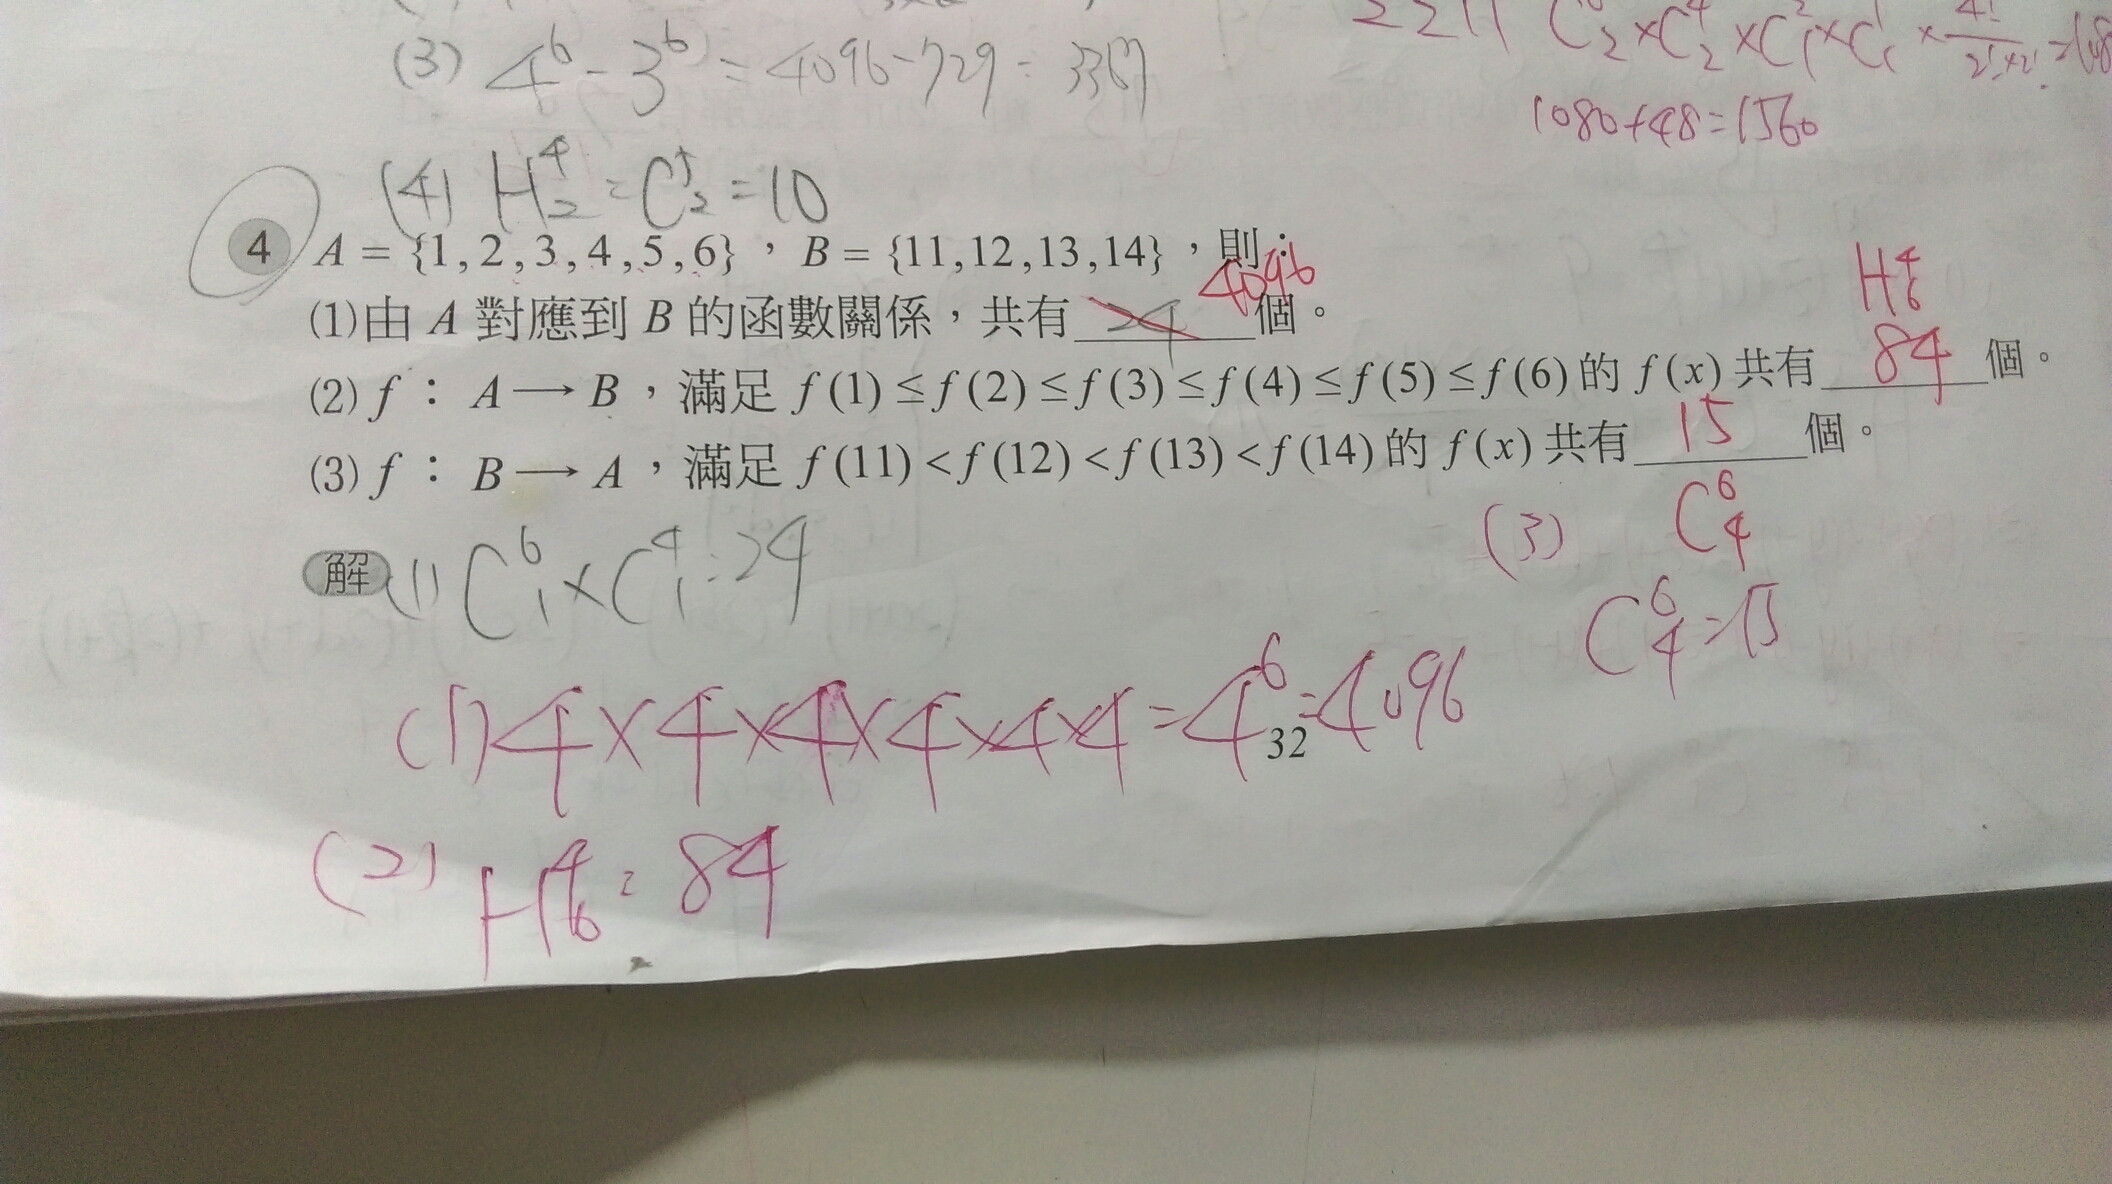 (3) 4⁶ - 3⁶ = 4096 - 729 = 3367
2211 C₂ × C⁴₂ × C²₁ × C¹₁ × 4!/2!×2! = 108
1080 + 48 = 1560
(4) H⁴₂ = C⁵₂ = 10
4 A = {1,2,3,4,5,6},B = {11,12,13,14},則:
(1)由 A 對應到 B 的函數關係,共有 24 4096 個。
H⁴₆
(2) f : A → B,滿足 f(1) ≤ f(2) ≤ f(3) ≤ f(4) ≤ f(5) ≤ f(6) 的 f(x) 共有 84 個。
(3) f : B → A,滿足 f(11) < f(12) < f(13) < f(14) 的 f(x) 共有 15 個。
(3) C⁶₄
解 (1) C⁶₁ × C⁴₁ = 24
C⁶₄ = 15
(1) 4 × 4 × 4 × 4 × 4 × 4 = 4⁶ = 4096
32
(2) H⁴₆ = 84